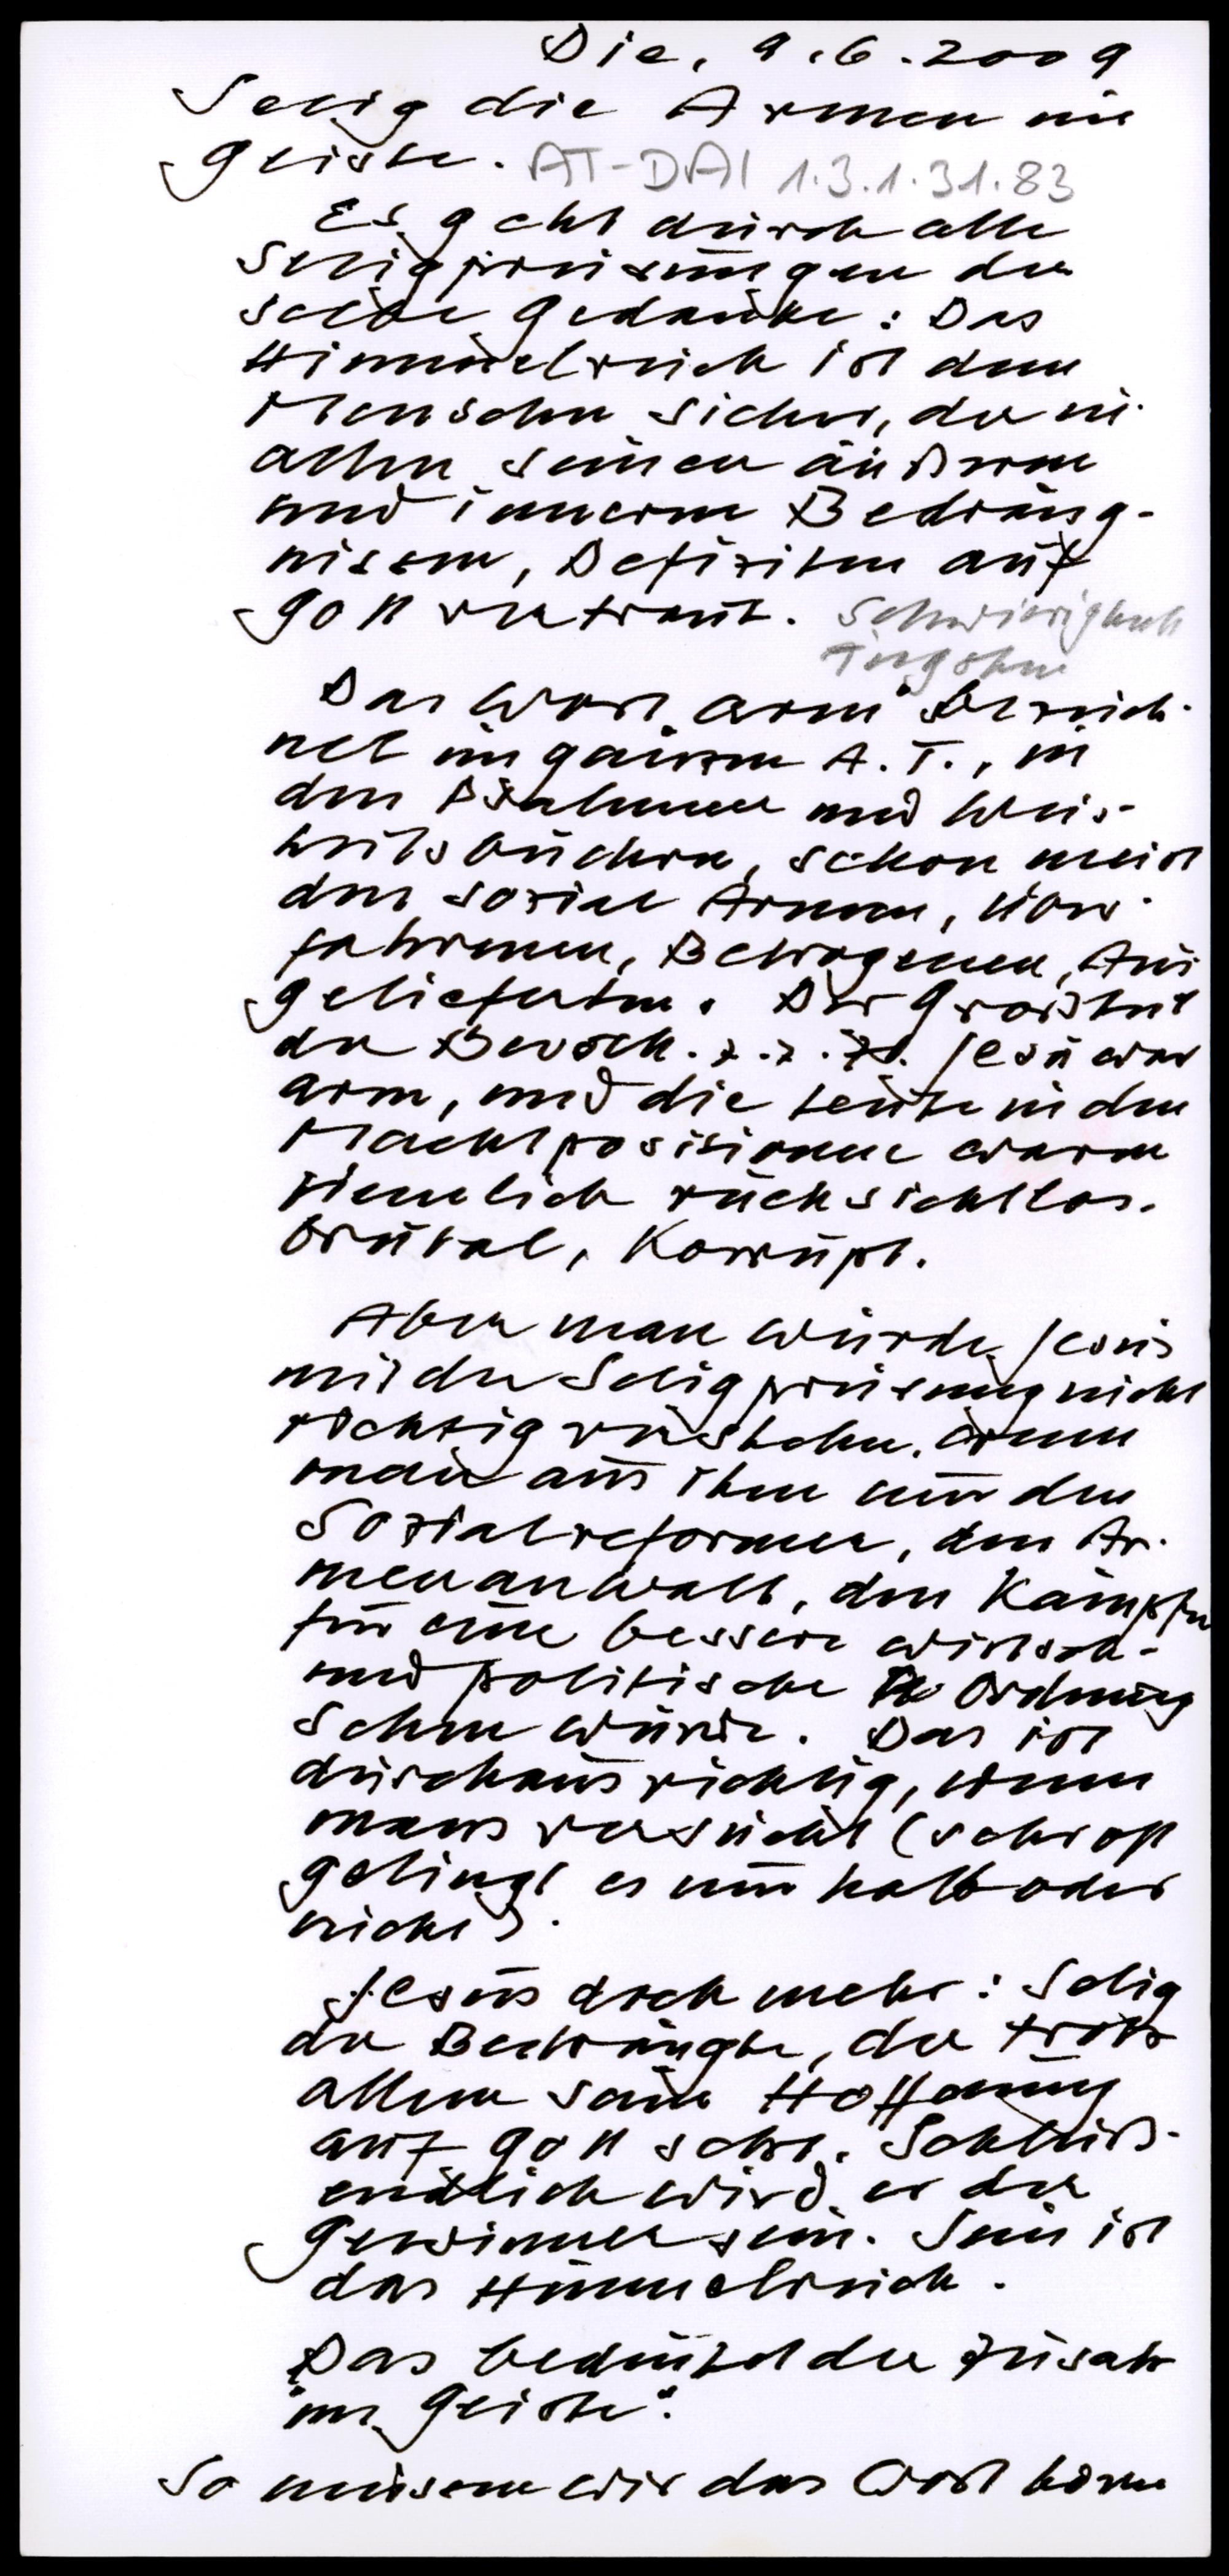 Die, 9.6.2009
Selig die Armen im
Geiste. AT-DAI 1.3.1.31.83
Es geht durch alle
Seligpreisungen der
selbe Gedanke: Das
Himmelreich ist dem
Menschen sicher, der in
allen seinen äußeren
und inneren Bedräng-
nissen, Defiziten auf
Gott vertraut. Schwierigkeit
Das Wort "arm" bezeich-
net im ganzen A.T., in
den Psalmen und Weis-
heitsbüchern, schon meist
den sozial Armen,
Betrogenen, Aus
gelieferten. Der Großteil
der Bevölk. z. Z. Jesu war
arm, und die Leute in den
Machtpositionen waren
ziemlich rücksichtslos.
brutal, korrupt.
Aber man würde Jesus
mit der Seligpreisung nicht
richtig verstehen, wenn
man aus ihm nur den
Sozialreformer, den Ar-
menanwalt, den Kämpfer
für eine bessere wirtsch.-
und politische Ordnung
sehen würde. Das ist
durchaus richtig, wenn
mans versucht (sehr oft
gelingt es nur halb oder
nicht).
Jesus doch mehr: Selig
der Bedrängte, der trotz
allem seine Hoffnung
auf Gott setzt. Schluß-
endlich wird er der
Gewinner sein. Sein ist
das Himmelreich.
Das bedeutet der Zusatz
"im Geiste".
So müssen wir das Wort hören